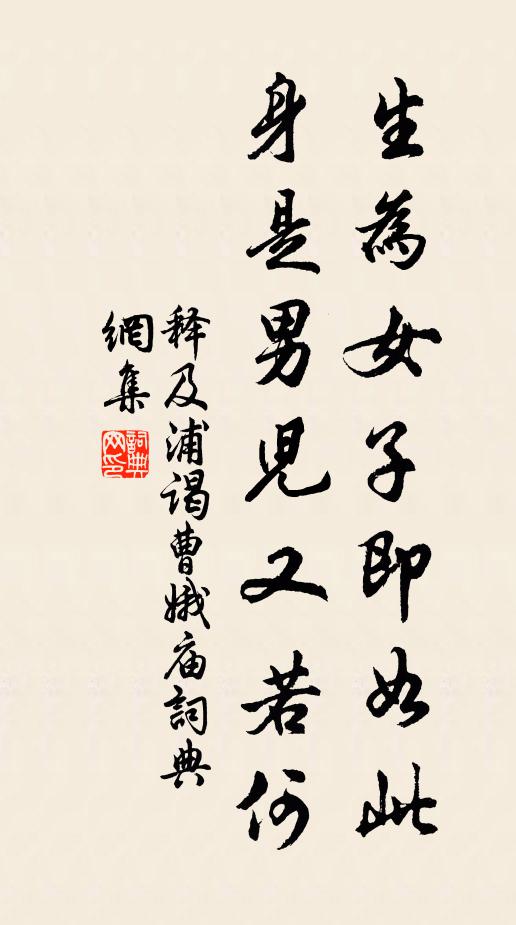 生為女子即如此
身是男兒又若何
释及浦谒曹娥庙詞典
網集
詞典網印